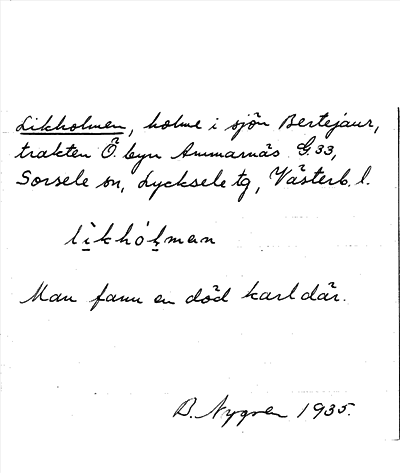 Likholmen, holme i sjön Bertejaur,
trakten Ö. byn Ammarnäs G. 33,
Sorsele sn, Lycksele tg, Västerb. l.
li̱khóḻman
Man fann en död karl där.
B. Nygren 1935.